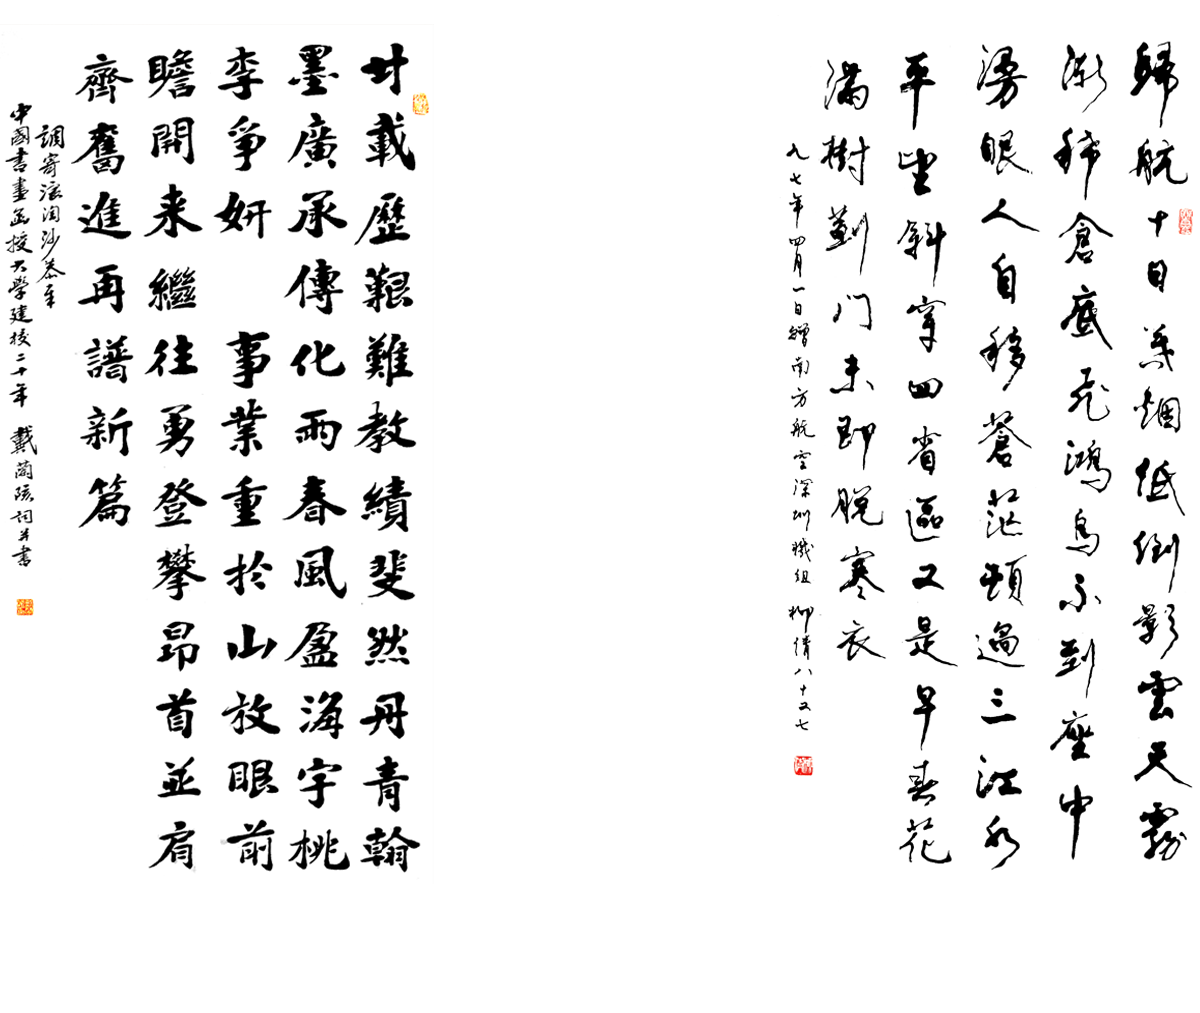 歸航十日烟低倒影雲天霧
漸稀倉底飛鴻鳥不到座中
湧眼人自移蒼茫頓過三江水
平坐斜穿四省區又是早春花
滿樹薊門未即脫寒衣
九七年四月一日贈南方航空深圳機組 柳倩八十又七
廿載歷艱難教績斐然丹青翰
墨廣承傳化雨春風盈海宇桃
李爭妍 事業重於山放眼前
瞻開来繼往勇登攀昂首並肩
齊奮進再譜新篇
調寄浪淘沙恭奉
中國書畫函授大學建校二十年 戴蘭陔詞并書